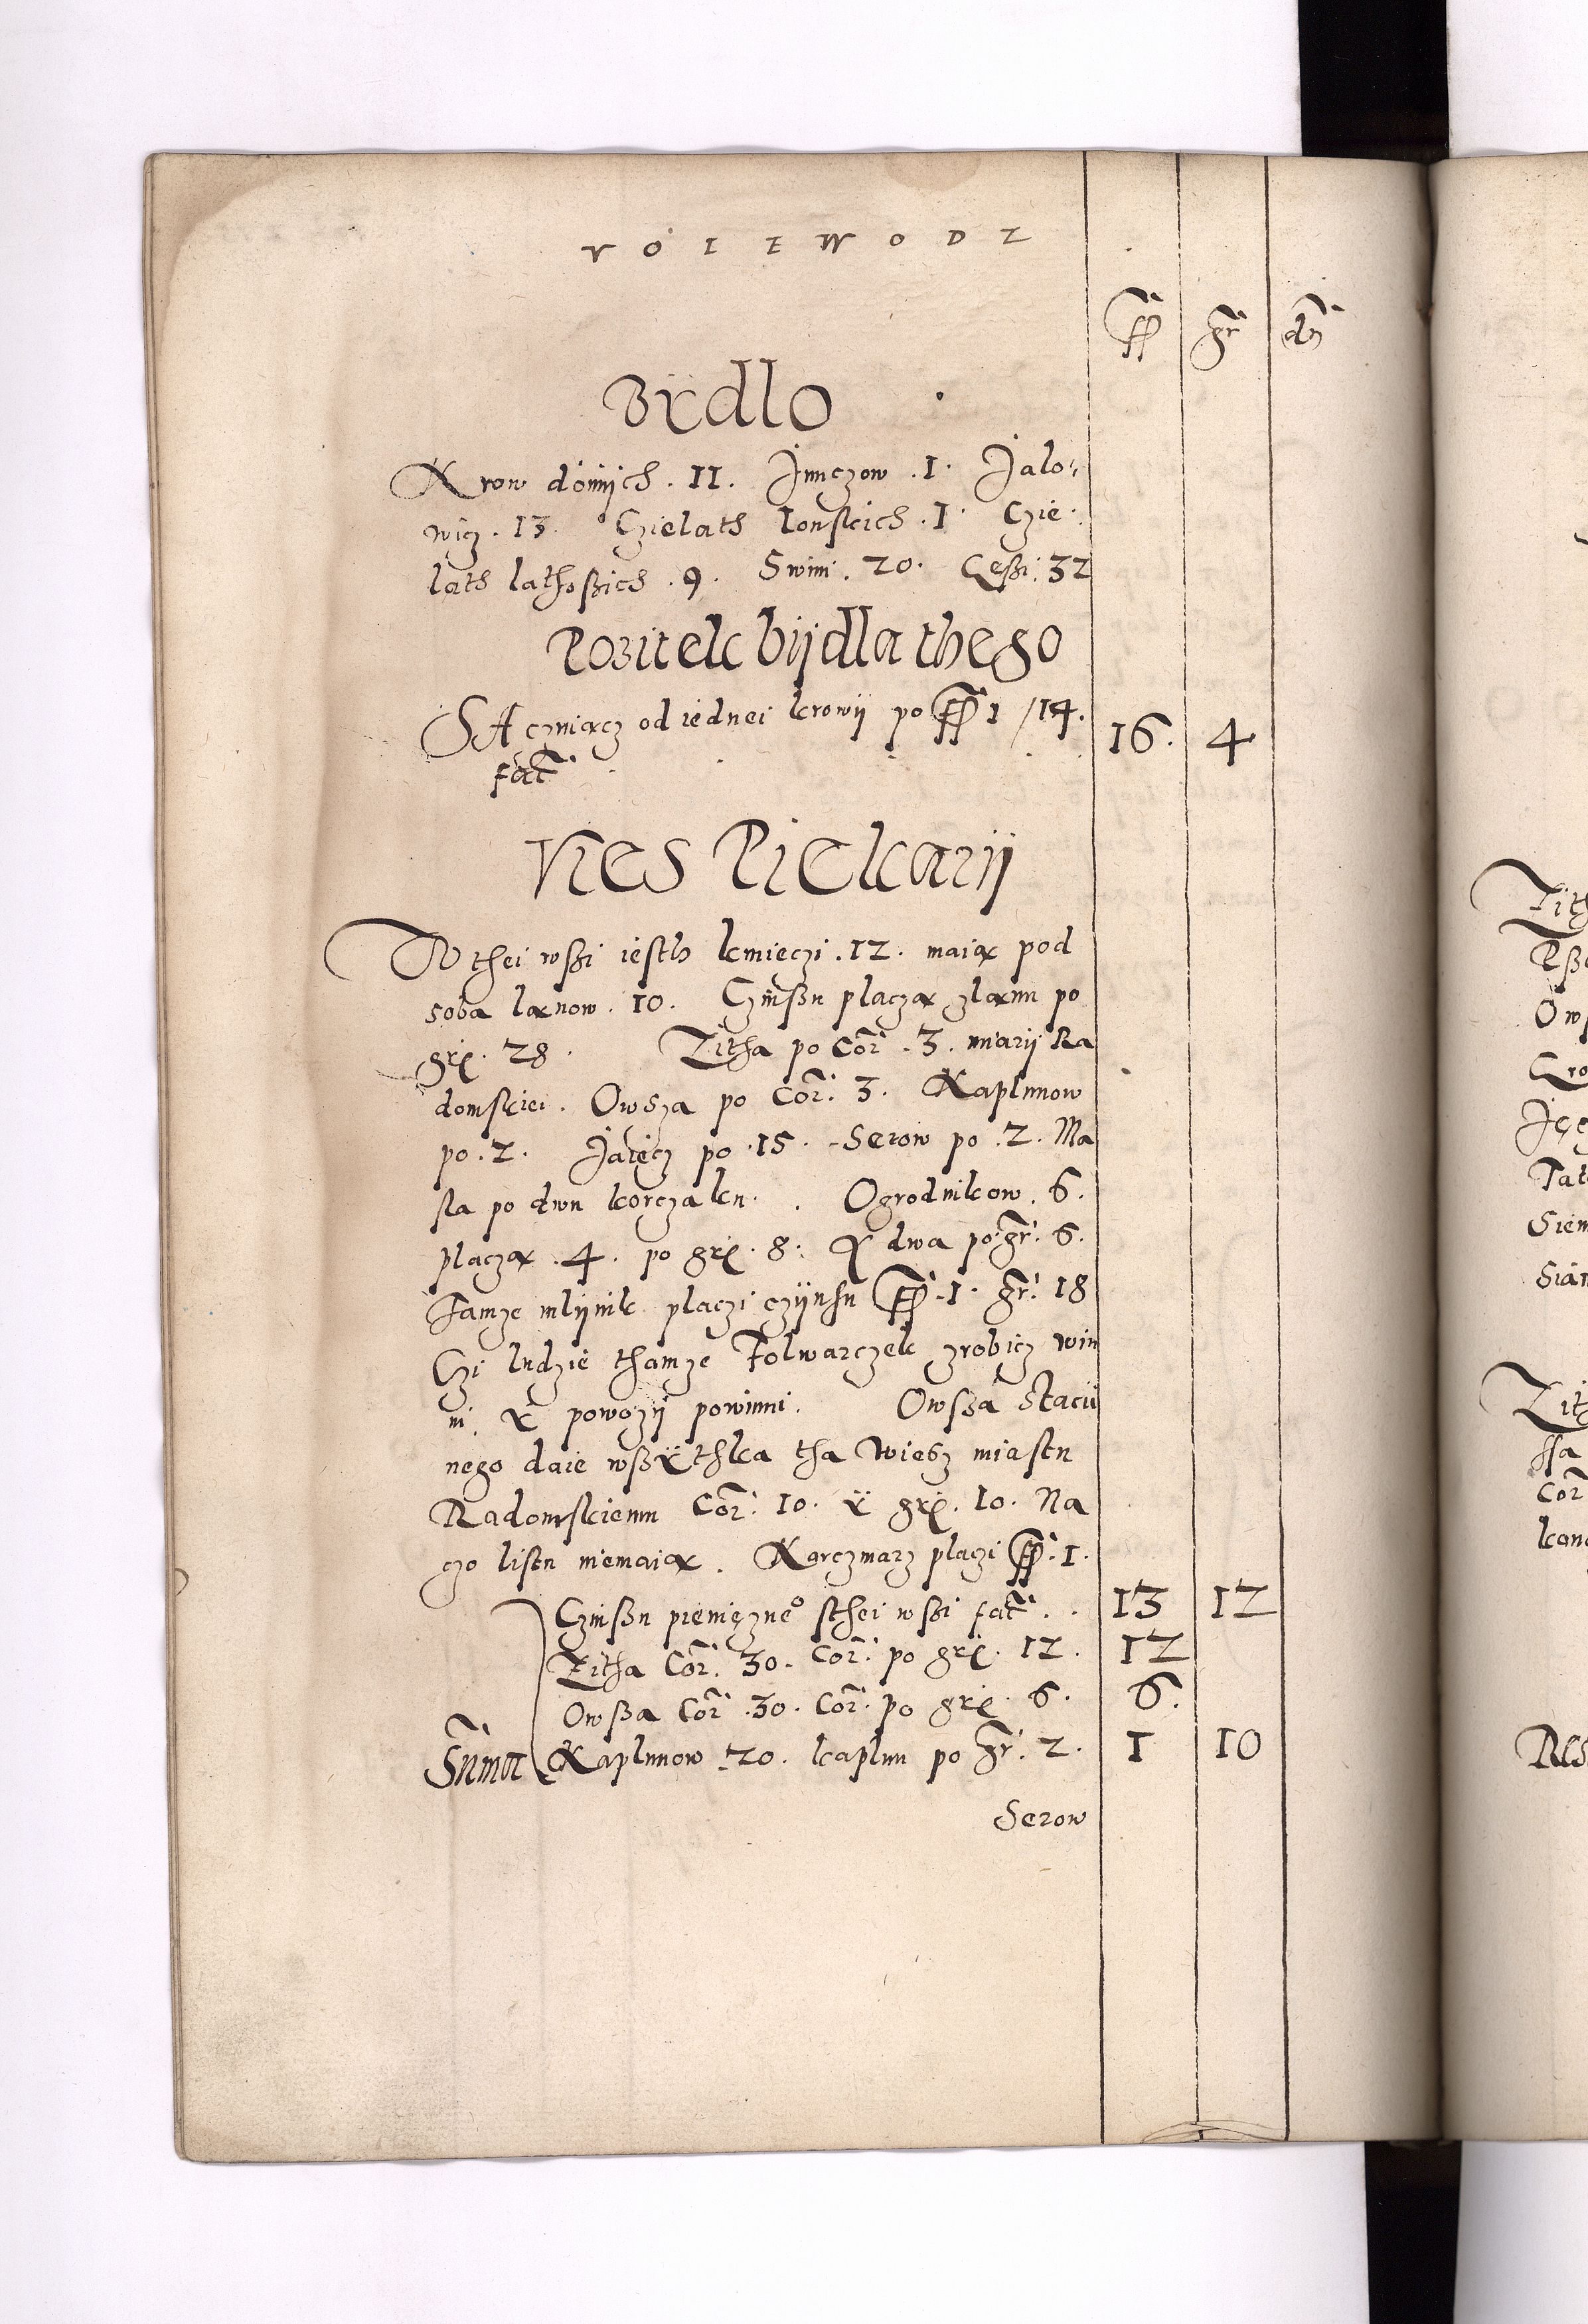 VOIEWODZ
ff gr dn
Bÿdlo
Krow dóinijch . 11 . Junczow . 1 . Jalo:
wicz . 13 . Czielath lonskich . 1 . Czie
lath lathoßich . 9 . Swini . 20 . Gęßi . 32
Pozitek bijdla thego
SAczuiącz od iednei krowij po ff 1 / 14 . 16 . 4
facit
Vies Piekarij
W thei wßi iesth kmieczi . 12 . maią pod
soba lanow . 10 . Czinßu placzą zlanu po
grß . 28 . Zitha po Cor . 3 . miarij Ra
domskiei . Owsza po Cor . 3 . Kaplunow
po . 2 . Jaiecz po . 15 . Serow po . 2 . Ma
sla po dwu korczaku . Ogrodnikow . 6 .
placzą . 4 . po grß . 8 . Ÿ dwa po gr . 6 .
Tamze mlijnik placzi czijnsu ff . 1 . gr . 18
Czi ludzie thamze Folwarczek zrobicz win
ni ÿ powozij powinni . Owßa stacii
nego daie wßÿthka tha wiesz miastu
Radomskiemu Cor . 10 . ÿ grß . 10 . Na
czo listu niemaią . Karczmarz placzi ff . 1 .
Czinßu pieniężneo sthei wßi facit . . 13 12
Zitha Cor . 30 . Cor . po grß . 12 . 12
Owßa Cor . 30 . Cor . po grß . 6 . 6 .
Suma Kaplunow . 20 . kaplun po gr . 2 . 1 10
Serow